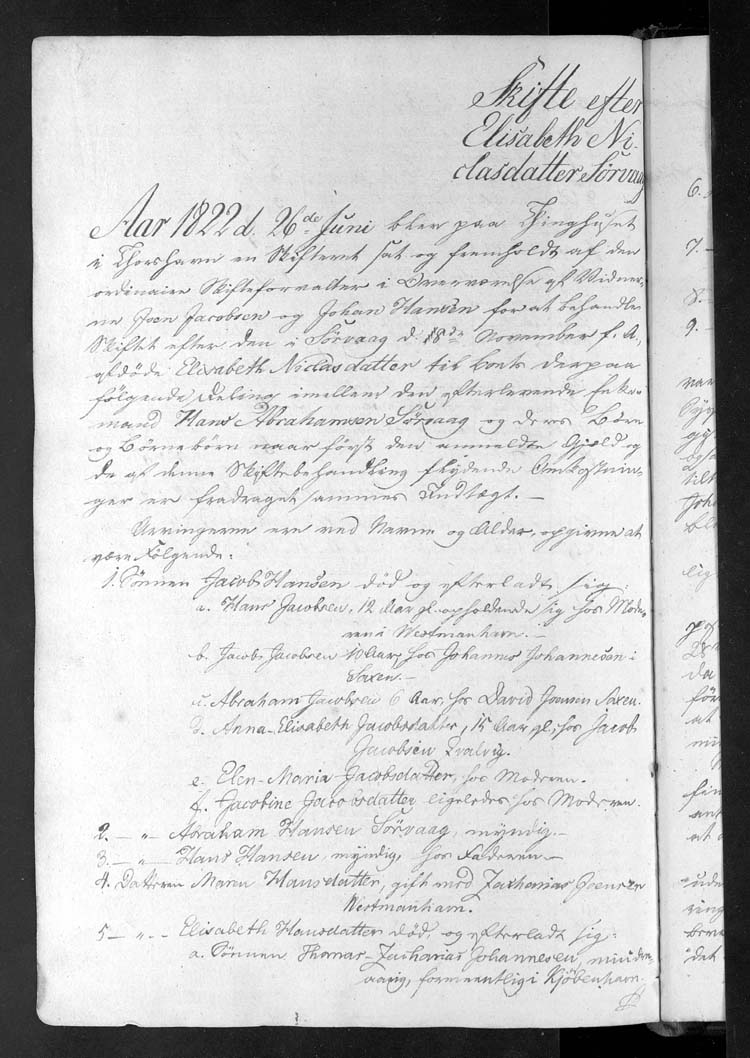 Skifte efter
Elisabeth Ni-
clasdatter Sörvaag
Aar 1822 d. 26de Juni blev paa Thinghuset
i Thorshavn en Skifteret sat og fremholdt af den
ordinaire Skifteforvalter i Overværelse af Vidner-
ne Joen Jacobsen og Johan Hansen for at behandle
Skiftet efter den i Sörvaag d: 18de November f. A.
afdöde Elisabeth Niclasdatter til hvets derpaa
fölgende Deling imellem den efterlevende Enke-
mand Hans Abrahamsen Sörvaag og deres Börn
og Börnebörn naar först den anmeldte Gjæld og
de af denne Skiftebehandling flydende Omkostnin-
ger er fradraget sammes Indtægt. -
Arvingerne ere ved Navne og Alder, opgivne at
være Fölgende:
1. Sönnen Jacob Hansen död og efterladt sig:
a. Hans Jacobsen, 12 Aar gl. opholdende sig hos Mode-
ren i Westmanhavn. -
b. Jacob Jacobsen 10 Aar, hos Johannes Johannesen i
Saxen. -
c. Abraham Jacobsen 6 Aar, hos David Joensen Saxen.
d. Anna-Elisabeth Jacobsdatter, 15 Aar gl., hos Jacob
Jacobsen Qvalvig.
e. Elen-Maria Jacobsdatter, hos Moderen.
f. Jacobine Jacobsdatter ligeledes hos Moderen.
2. - " - Abraham Hansen Sörvaag, myndig. -
3. - " - Hans Hansen, myndig, hos Faderen -
4. Datteren Maren Hansdatter, gift med Zacharias Joensen
Westmanhavn.
5 - " - Elisabeth Hansdatter död og efterladt sig:
a. Sönnen Thomas-Zacharias Johannesen, minder-
aarig, formeentlig i Kjöbenhavn.
6.
7. -
8. -
9. -